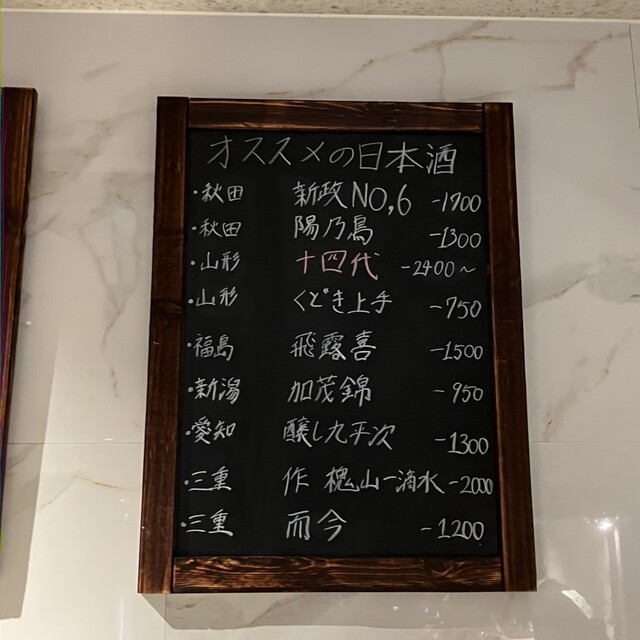 オススメの日本酒
・秋田 新政NO,6 -1700
・秋田 陽乃鳥 -1300
・山形 十四代 -2400~
・山形 くどき上手 -750
・福島 飛露喜 -1500
・新潟 加茂錦 -950
・愛知 醸し九平次 -1300
・三重 作 槐山一滴水 -2000
・三重 而今 -1200